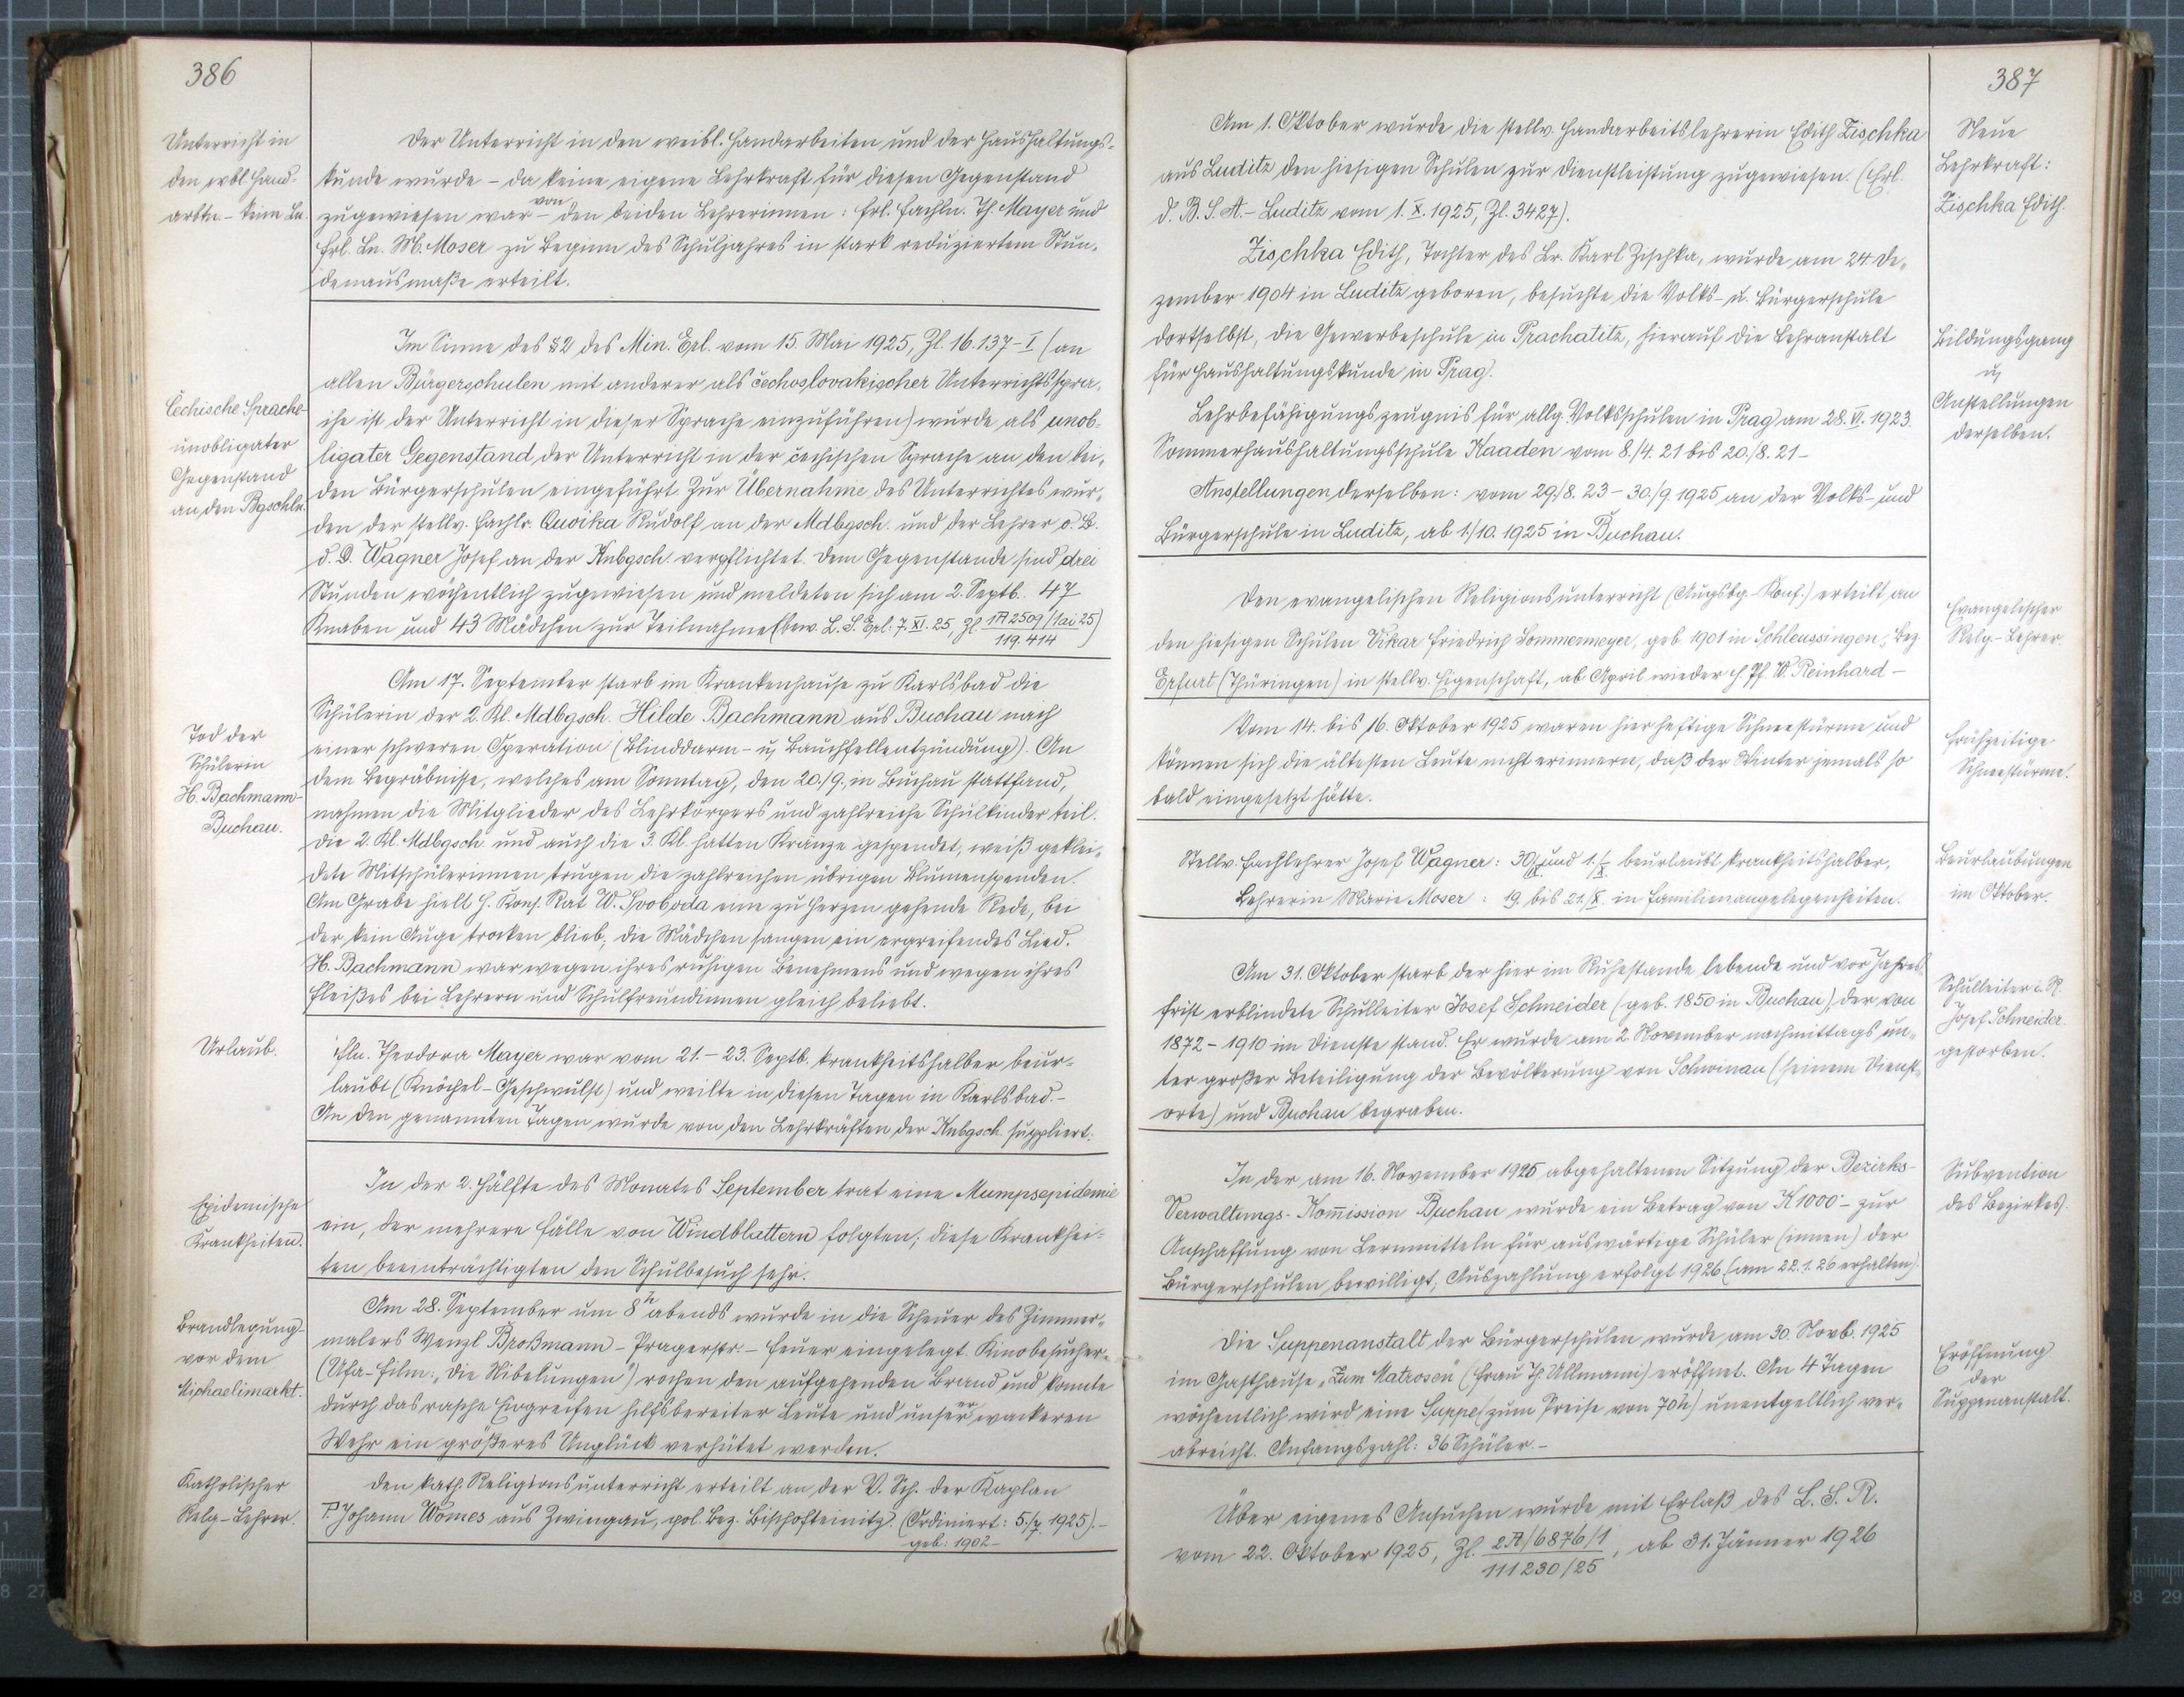 386
Unterricht in
den wbl. Hand-
arbtn. – keine Ln.
Der Unterricht in den weibl. Handarbeiten und der Haushaltungs-
kunde wurde – da keine eigene Lehrkraft für diesen Gegenstand
zugewiesen war – von den beiden Lehrerinnen: Frl. Fachln. Th. Mayer und
Frl. Ln. M. Moser zu Beginn des Schuljahres in stark reduziertem Stun-
denausmaße erteilt.
Čechische Sprache-
unobligater
Gegenstand
an den Bgschln.
Im Sinne des §2 des Min. Erl. vom 15. Mai 1925, Zl. 16.137-I (an
allen Bürgerschulen mit anderer als čechoslovakischer Unterrichtsspra-
che ist der Unterricht in dieser Sprache einzuführen) wurde als unob-
ligater Gegenstand der Unterricht in der čechischen Sprache an den bei-
den Bürgerschulen eingeführt. Zur Übernahme des Unterrichtes wur-
den der stellv. Fachlr. Quoika Rudolf an der Mdbgsch. und der Lehrer o. B.
d. D. Wagner Josef an der Knbgsch. verpflichtet. Dem Gegenstande sind drei
Stunden wöchentlich zugewiesen und meldeten sich am 2. Septb. 47
Knaben und 43 Mädchen zur Teilnahme (bew. L. S. Erl. 7. XI. 25, Zl. 1A 2509/1ai 25)
119.414
Tod der
Schülerin
H. Bachmann-
Buchau.
Am 17. September starb im Krankenhause zu Karlsbad die
Schülerin der 2. Kl. Mdbgsch. Hilde Bachmann aus Buchau nach
einer schweren Operation (Blinddarm- u. Bauchfellentzündung). An
dem Begräbnisse, welches am Sonntag, den 20./9., in Buchau stattfand,
nahmen die Mitglieder des Lehrkörpers und zahlreiche Schulkinder teil.
Die 2. Kl. Mdbgsch. und auch die 3. Kl. hatten Kränze gespendet, weiß geklei-
dete Mitschülerinnen trugen die zahlreichen übrigen Blumenspenden.
Am Grabe hielt H. Kons. Rat W. Svoboda eine zu Herzen gehende Rede, bei
der kein Auge trocken blieb; die Mädchen sangen ein ergreifendes Lied.
H. Bachmann war wegen ihres ruhigen Benehmens und wegen ihres
Fleißes bei Lehrern und Schulfreundinnen gleich beliebt.
Urlaub.
Fln. Theodora Mayer war vom 21.–23. Septb. krankheitshalber beur-
laubt (Knöchel-Geschwulst) und weilte in diesen Tagen in Karlsbad.–
An den genannten Tagen wurde von den Lehrkräften der Knbgsch. suppliert.
Epidemische
Krankheiten.
In der 2. Hälfte des Monates September trat eine Mumpsepidemie
ein, der mehrere Fälle von Windblattern folgten; diese Krankhei-
ten beeinträchtigten den Schulbesuch sehr.
Brandlegung-
vor dem
Michaelimarkt.
Am 28. September um 8h abends wurde in die Scheuer des Zimmer-
malers Wenzl Broßmann – Pragerstr. – Feuer eingelegt. Kinobesucher
(Ufa-Film: „Die Nibelungen“) rochen den aufgehenden Brand und konnte
durch das rasche Eingreifen hilfsbereiter Leute und unserer wackeren
Wehr ein größeres Unglück verhütet werden.
Katholischer
Relg.-Lehrer.
Den kath. Religionsunterricht erteilt an der V. Sch. der Kaplan
P. Johann Wömes aus Zwingau, pol. Bez. Bischofteinitz. (Ordiniert: 5./7. 1925).–
geb: 1902–
387
Am 1. Oktober wurde die stellv. Handarbeitslehrerin Edith Zischka
aus Luditz den hiesigen Schulen zur Dienstleistung zugewiesen. (Erl.
d. B. S. A.– Luditz vom 1. X. 1925, Zl. 3427).
Neue
Lehrkraft:
Zischka Edith.
Zischka Edith, Tochter des Lr. Karl Zischka, wurde am 24. De-
zember 1904 in Luditz geboren, besuchte die Volks- u. Bürgerschule
dortselbst, die Gewerbeschule in Prachatitz, hierauf die Lehranstalt
für Haushaltungskunde in Prag.
Bildungsgang
u.
Anstellungen
derselben.
Lehrbefähigungszeugnis für allg. Volksschulen in Prag am 28. VI. 1923.
Sommerhaushaltungsschule Kaaden vom 8./4. 21 bis 20./8. 21–
Anstellungen derselben: vom 29./8. 23 – 30./9 1925 an der Volks- und
Bürgerschule in Luditz, ab 1./10. 1925 in Buchau.
Den evangelischen Religionsunterricht (Augsbg. Konf.) erteilt an
den hiesigen Schulen Vikar Friedrich Sommermeyer, geb. 1901 in Schleussingen, Bez.
Erfurt (Thüringen) in stellv. Eigenschaft, ab April wieder H. Pf. W. Reinhard –
Evangelischer
Relg.-Lehrer.
Vom 14. bis 16. Oktober 1925 waren hier heftige Schneestürme und
können sich die ältesten Leute nicht erinnern, daß der Winter jemals so
bald eingesetzt hätte.
Frühzeitige
Schneestürme.
Stellv. Fachlehrer Josef Wagner: 30./IX. und 1./X. beurlaubt, krankheitshalber,
Lehrerin Marie Moser: 19. bis 21./X. in Familienangelegenheiten.
Beurlaubungen
im Oktober.
Am 31. Oktober starb der hier im Ruhestande lebende und vor Jahres-
frist erblindete Schulleiter Josef Schneider (geb. 1850 in Buchau), der von
1872–1910 im Dienste stand. Er wurde am 2. November nachmittags un-
ter großer Beteiligung der Bevölkerung von (seinem Dienst-
orte) und Buchau begraben.
Schulleiter i. R.
Josef Schneider
gestorben.
In der am 16. November 1925 abgehaltenen Sitzung der Bezirks-
Verwaltungs-Kommission Buchau wurde ein Betrag von K 1000·– zur
Anschaffung von Lernmitteln für auswärtige Schüler (innen) der
Bürgerschulen bewilligt; Auszahlung erfolgt 1926 (am 22. 1. 26 erhalten).
Subvention
des Bezirkes.
Die Suppenanstalt der Bürgerschulen wurde am 30. Novb. 1925
im Gasthause „Zum Matrosen“ (Frau Th. Ullmann) eröffnet. An 4 Tagen
wöchentlich wird eine Suppe (zum Preise von 70h) unentgeltlich ver-
abreicht. Anfangszahl: 36 Schüler.–
Eröffnung
der
Suppenanstalt.
Über eigenes Ansuchen wurde mit Erlaß des L. S. R.
vom 22. Oktober 1925, Zl. 2A/6876/1, ab 31. Jänner 1926
111230/25